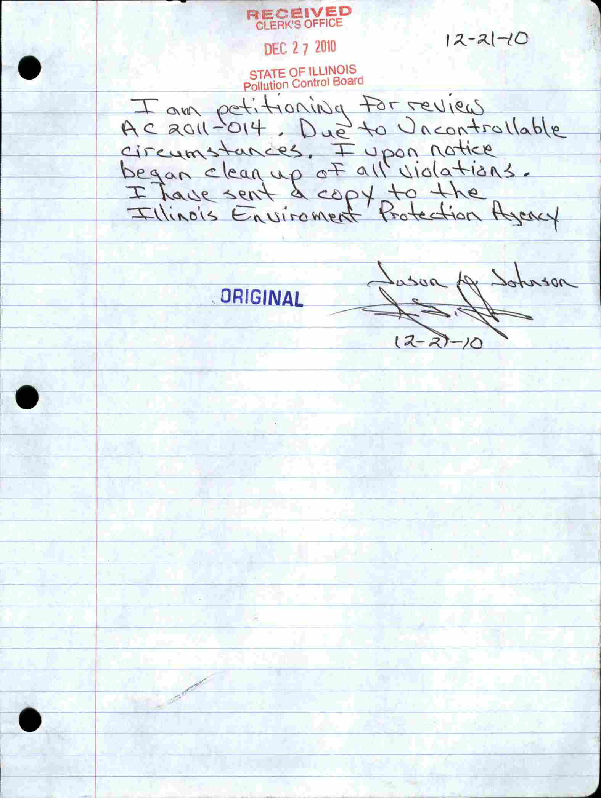 RECEIVED
CLERK'S OFFICE
DEC 27 2010
STATE OF ILLINOIS
Pollution Control Board
12-21-10
I am petitioning for review
AC 2011-014. Due to Uncontrollable
circumstances. I upon notice
began clean up of all violations.
I have sent a copy to the
Illinois Enviroment Protection Agency
ORIGINAL
Jason Johnson
12-21-10